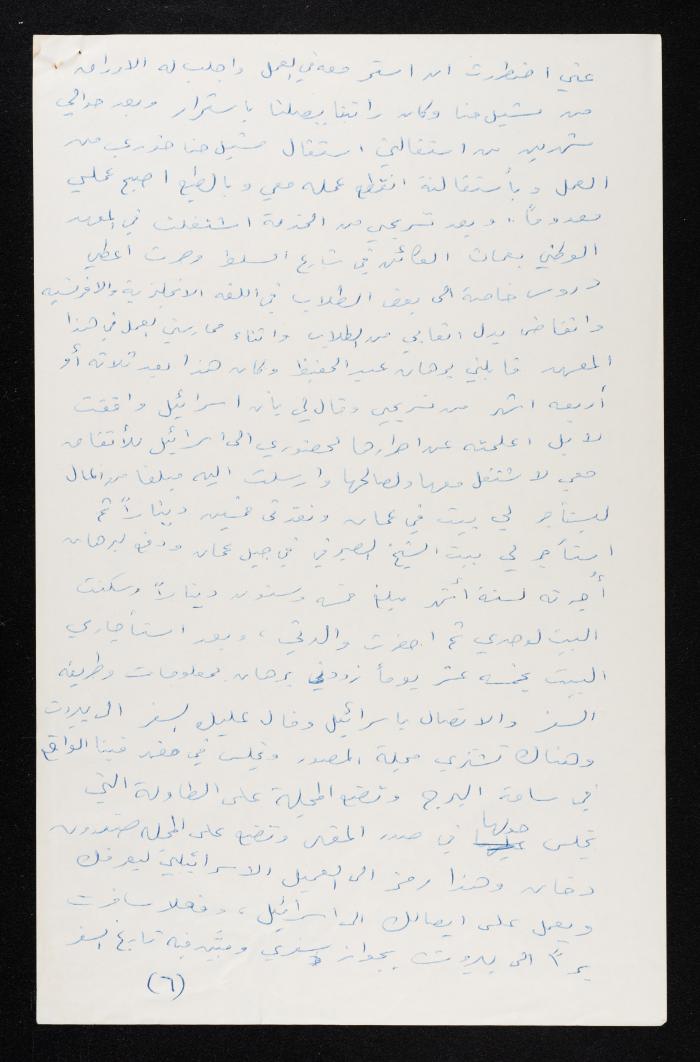 عني اضطررت ان استمر معه في العمل واجلب له الاوراق
من ميشيل حنا وكان راتبنا يصلنا باستمرار وبعد حوالي
شهرين من استقالتي استقال ميشيل حنا خوري من
العمل وبأستقالته انقطع عمله معي وبالطبع اصبح عملي
معدوماً، وبعد تسريحي من الخدمة اشتغلت في المعهد
الوطني بعمان الكائن في شارع السلط وصرت أعطي
دروس خاصة الى بعض الطلاب في اللغه الانجليزية والافرنسيه
واتقاضى بدل اتعابي من الطلاب واثناء ممارستي لعمل في هذا
المعهد قابلني برهان عبد الحفيظ وكان هذا بعد ثلاثه أو
أربعه اشهر من تسريحي وقال لي بأن اسرائيل وافقت
لا بل اعلمته عن اصرارها لحضوري الى اسرائيل للأتفاق
معي لاشتغل معها ولصالحها وارسلت اليه مبلغا من المال
ليستأجر لي بيت في عمان ونقدني خمسين ديناراً ثم
استأجر لي بيت الشيخ الصيرفي في جبل عمان ودفع لبرهان
أُجرته لستة أشهر مبلغ خمسه وستون ديناراً وسكنت
البيت لوحدي ثم احضرت والدتي، وبعد استأجاري
البيت بخمسه عشر يوماً زودني برهان بمعلومات وطريقه
السفر والاتصال باسرائيل وقال عليك بسفر الى بيروت
وهناك تشتري مجلة المصور وتجلس في مقهى فينا الواقع
في ساحة البرج وتضع المجلة على الطاولة التي
تجلس حولها في صدر المقهى وتضع على المجله صندوق
دخان وهذا رمز الى العميل الاسرائيلي ليعرفك
ويعمل على ايصالك الى اسرائيل، وفعلا سافرت
براً الى بيروت بجواز سفري ومبين فيه تاريخ السفر
(٦)